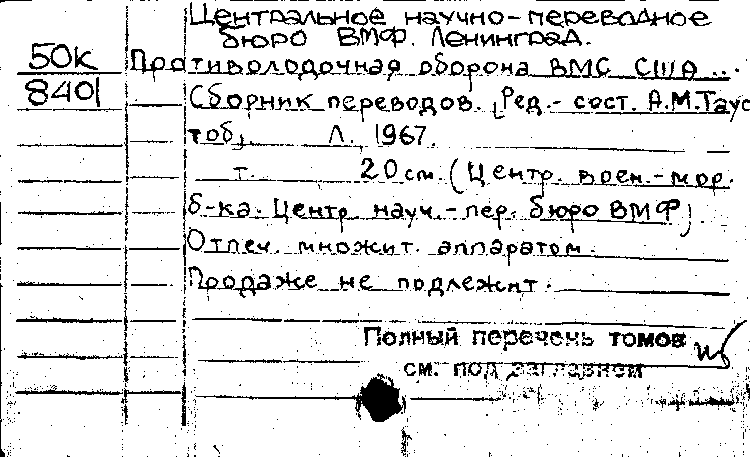 Центральное научно-переводное
бюро ВМФ. Ленинград.
50к Противолодочная оборона ВМС США ...
8401 Сборник переводов. [Ред.-сост. А.М. Таус
тоб], Л., 1967.
т. 20 см. (Центр. воен.-мор.
б-ка. Центр. науч.-пер. бюро ВМФ)
Отпеч. множит. аппаратом.
Продаже не подлежит.
Полный перечень томов
см. под заглавием